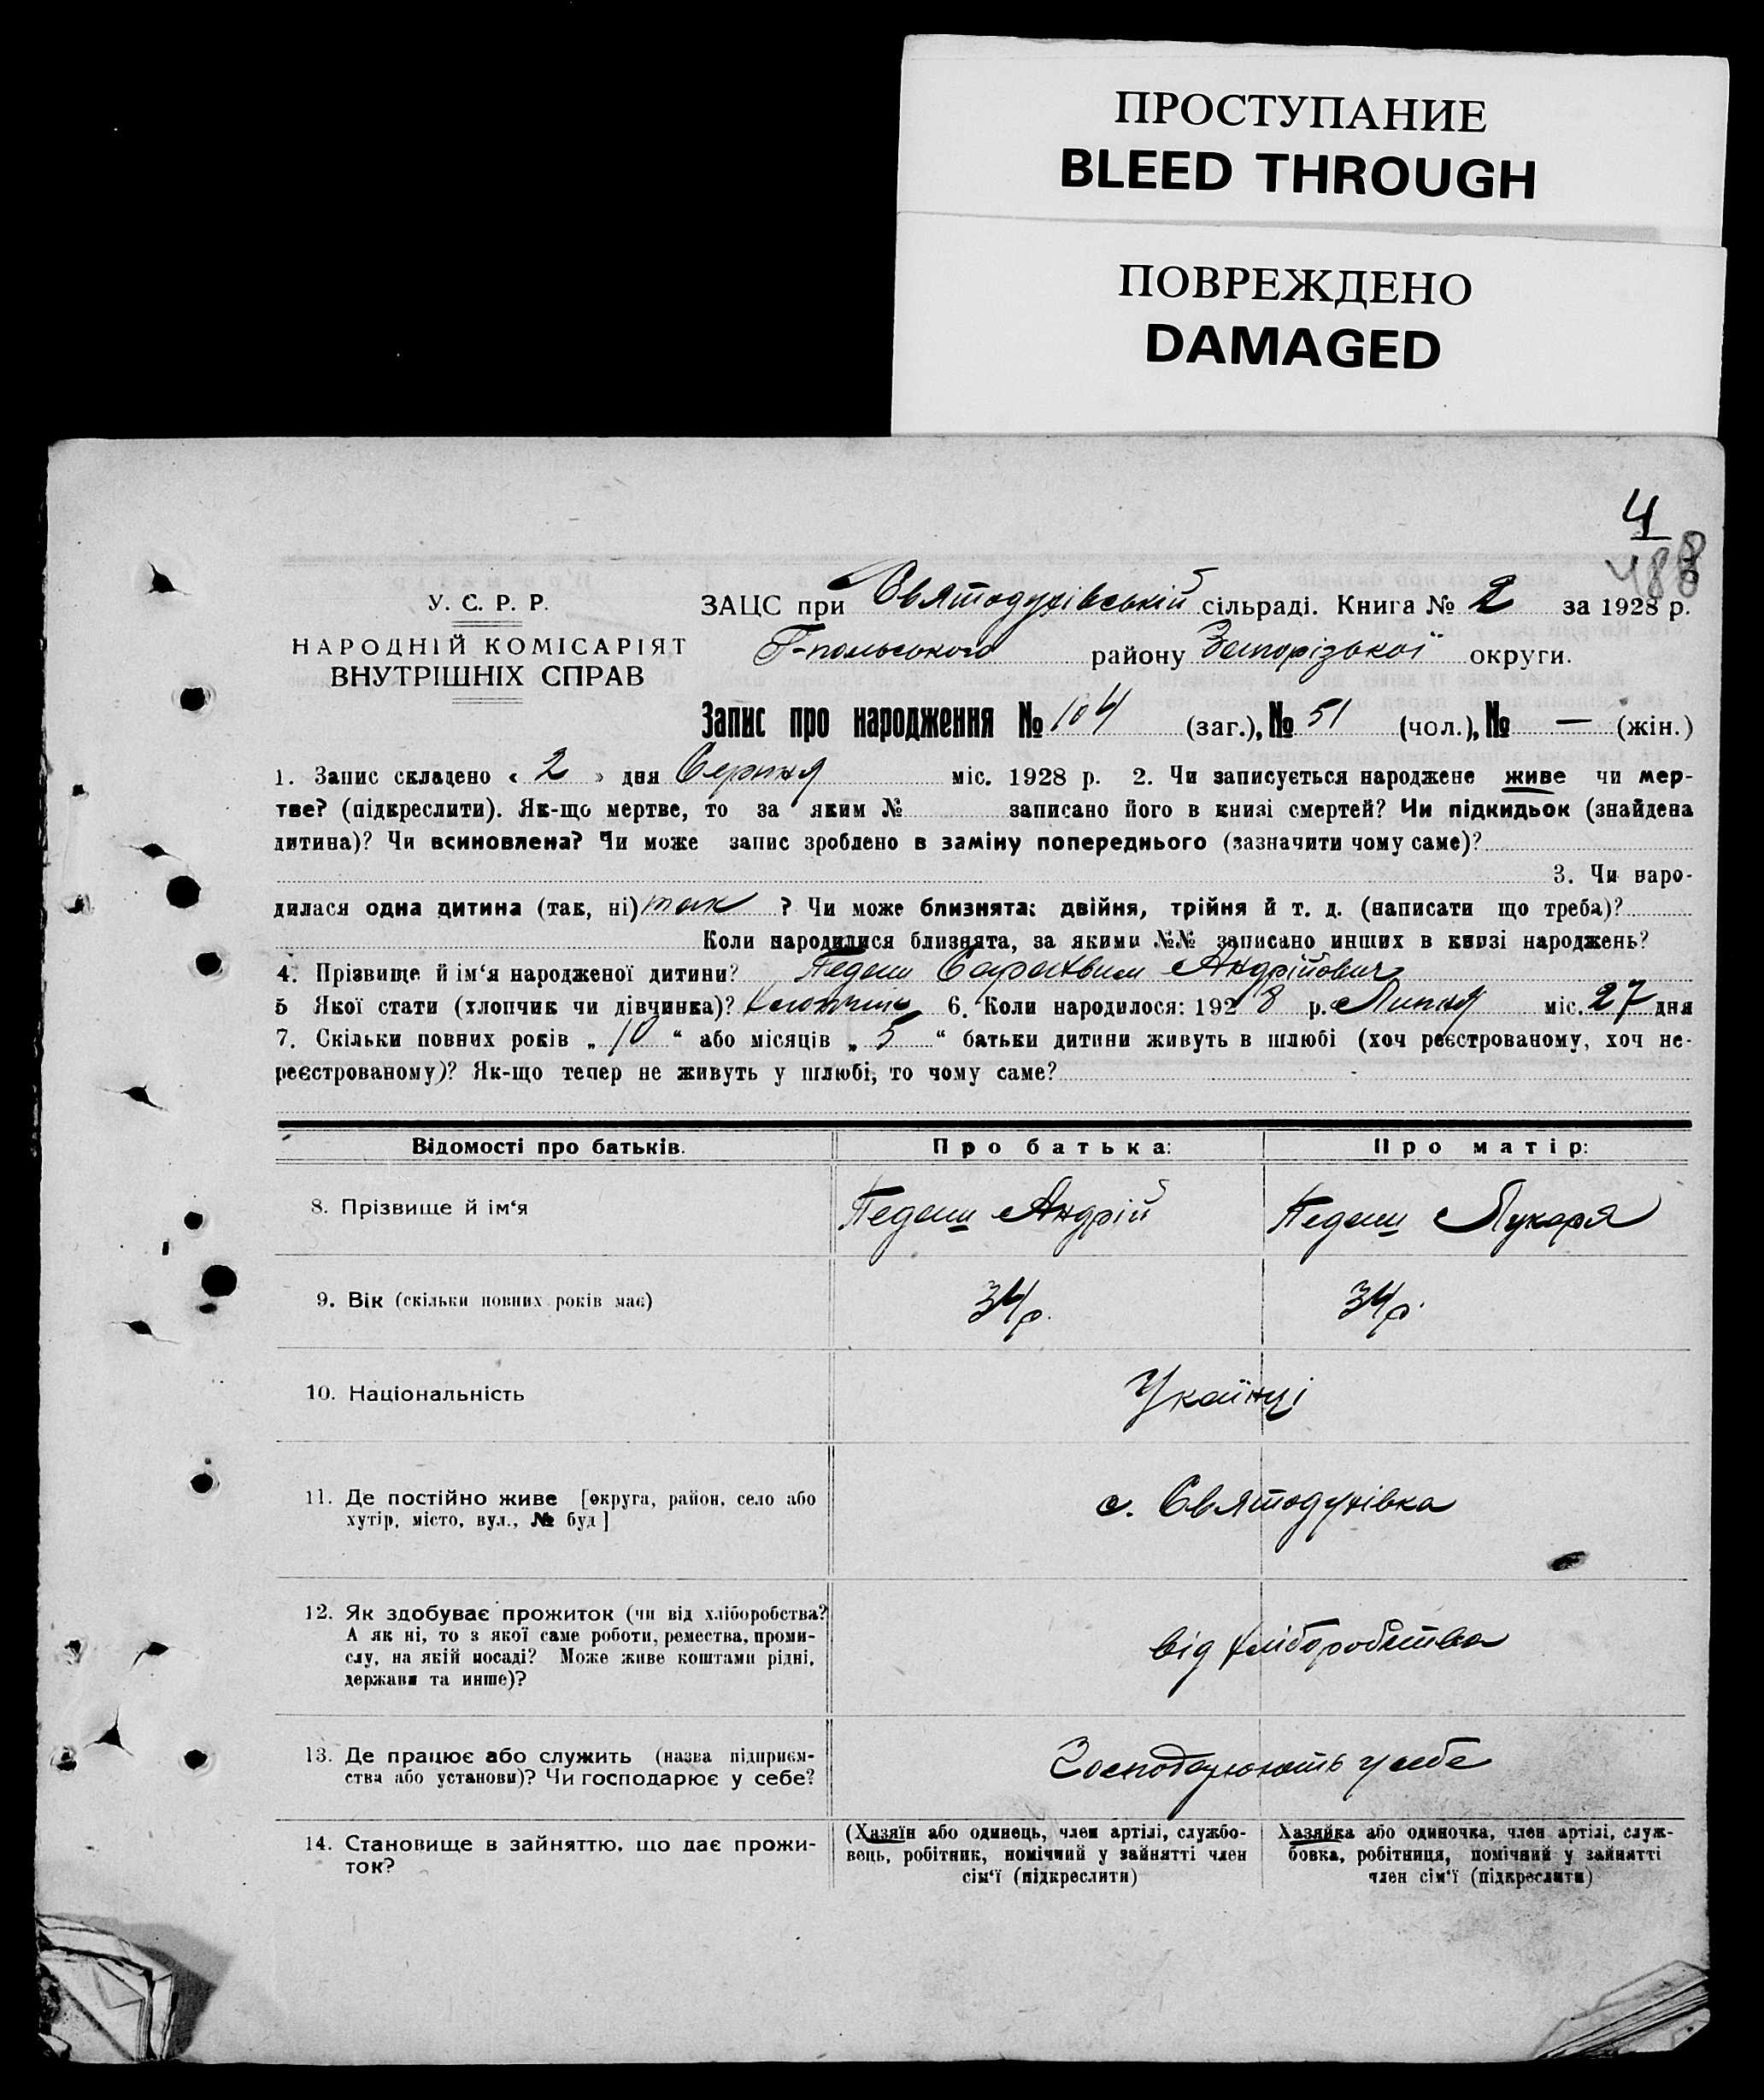 ПРОСТУПАНИЕ
BLEED THROUGH
ПОВРЕЖДЕНО
DAMAGED
4
488
У. С. Р. Р.
НАРОДНІЙ КОМІСАРІЯТ
ВНУТРІШНІХ СПРАВ
ЗАЦС при Святодухівській сільраді. Книга № 2 за 1928 р.
Г-польського району Запорізької округи.
Запис про народження № 104 (заг.), № 51 (чол.), № — (жін.)
1. Запис складено « 2 » дня Серпня міс. 1928 р. 2. Чи записується народжене живе чи мер-
тве? (підкреслити). Як-що мертве, то за яким № записано його в книзі смертей? Чи підкидьок (знайдена
дитина)? Чи всиновлена? Чи може запис зроблено в заміну попереднього (зазначити чому саме)?
3. Чи наро-
дилася одна дитина (так, ні) так ? Чи може близнята: двійня, трійня й т. д. (написати що треба)?
Коли народилися близнята, за якими №№ записано инших в книзі народжень?
4. Прізвище й ім‘я народженої дитини? Педаш Андрійович
5 Якої стати (хлопчик чи дівчинка)? Хлопчик 6. Коли народилося: 1928 р. Липня міс. 27 дня
7. Скільки повних років „ 10 “ або місяців „ 5 “ батьки дитини живуть в шлюбі (хоч реєстрованому, хоч не-
реєстрованому)? Як-що тепер не живуть у шлюбі, то чому саме?
Відомості про батьків. Про батька: Про матір:
8. Прізвище й ім‘я Педаш Андрій Педаш Лукаря
9. Вік (скільки повних років має) 34 р. 34 р.
10. Національність Укаїнці
11. Де постійно живе [округа, район, село або
хутір, місто, вул., № буд]
с. Святодухівка
12. Як здобуває прожиток (чи від хліборобства?
А як ні, то з якої саме роботи, ремества, проми-
слу, на якій посаді? Може живе коштами рідні,
держави та инше)?
від хліборобства
13. Де працює або служить (назва підприєм-
ства або установи)? Чи господарює у себе?
Господарюють у себе
14. Становище в зайняттю, що дає прожи-
ток?
(Хазяїн або одинець, член артілі, службо-
вець, робітник, помічний у зайнятті член
сім‘ї (підкреслити)
Хазяйка або одиночка, член артілі, служ-
бовка, робітниця, помічний у зайнятті
член сім‘ї (підкреслити)